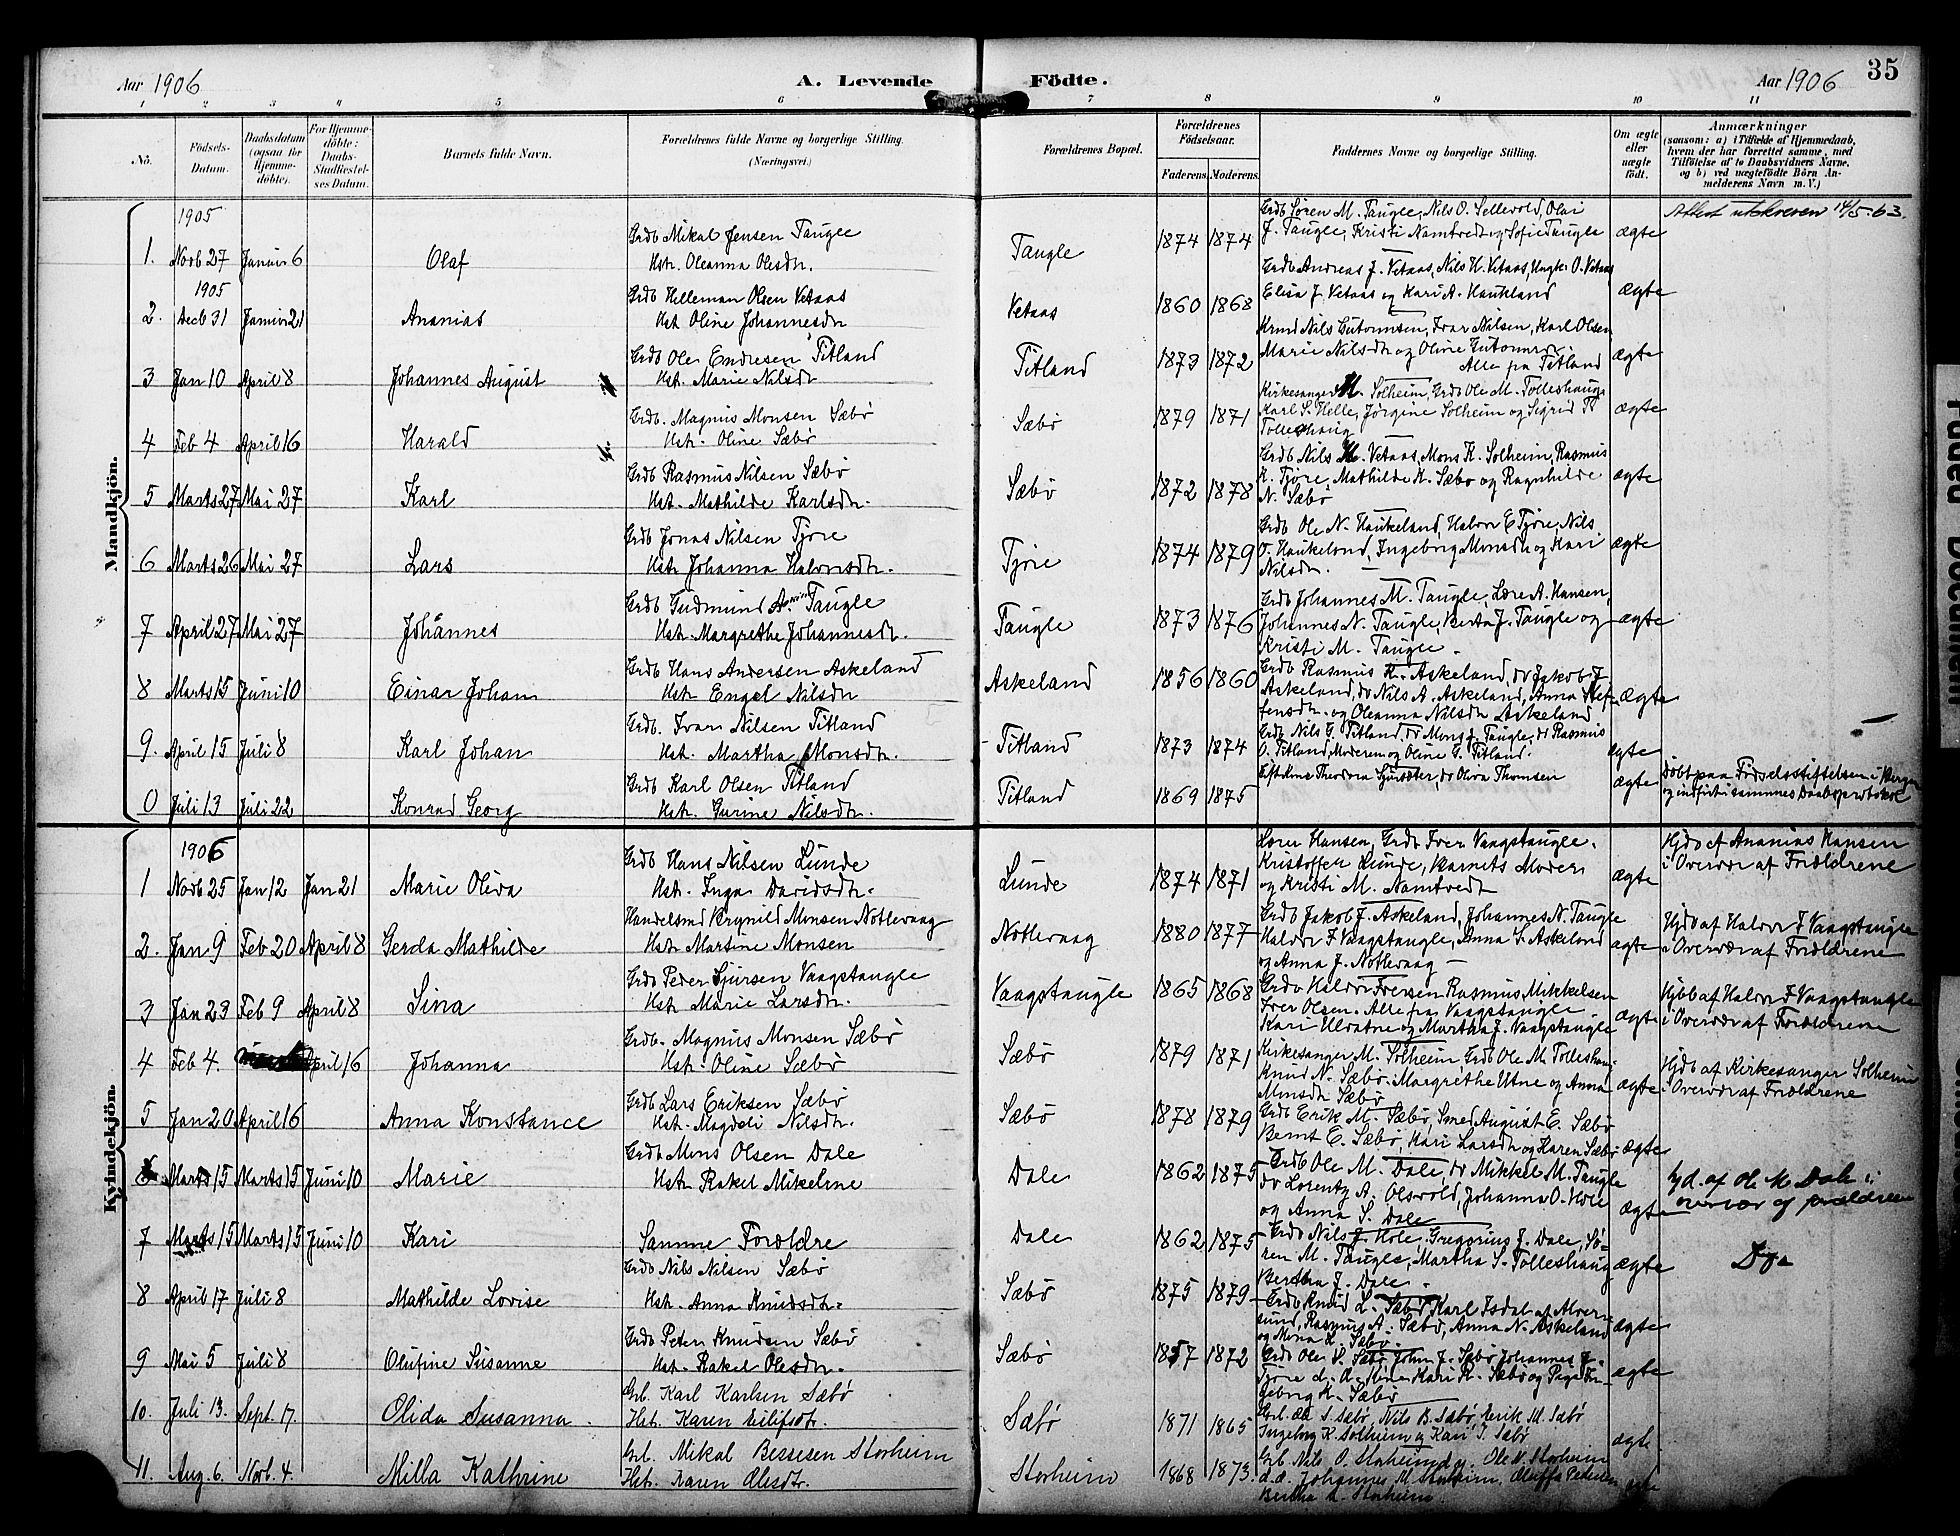 Aar 1906
A. Levende Födte.
Aar 1906
35
1 2 3 4 5 6 7 8 9 10 11
No.
Födsels-Datum.
Daabsdatum (ogsaa for Hjemme-döbte).
For Hjemme-döbte: Daabs-Stadfæstel-ses Datum.
Barnets fulde Navn.
Forældrenes fulde Navne og borgerlige Stilling. (Næringsvei.)
Forældrenes Bopæl.
Forældrenes Födselsaar.
Faderens. Moderens.
Faddernes Navne og borgerlige Stilling.
Om ægte eller uægte födt.
Anmærkninger
(saasom: a) i Tilfælde af Hjemmedaab, hvem der har forrettet samme, med Tilföielse af to Daabsvidners Navne, og b) ved uægtefödte Börn An-melderens Navn m. V.)
Mandkjön.
1905
1. Novb 27 Januar 6 Olaf
Grdb Mikal Jensen Taugle
Hst. Oleanna Olesdtr.
Taugle 1874 1874
Grdb Sören M. Taugle, Nils O. Sellevold, Olai
J. Taugle, Kristi Namtvedt og Sofie Taugle
ægte
Attest utskreven 14/5-63.
1905
2. Decb 31 Januar 21 Ananias
Grdb Hilleman Olsen Vetaas
Hst. Oline Johannesdtr
Vetaas 1860 1868
Grdb Andreas J. Vetaas, Nils H. Vetaas, Ungk. O. Vetaas
Elisa J. Vetaas og Kari A. Haukland
ægte
3 Jan 10 April 8 Johannes August
Grdb Ole Endresen Titland
Hst. Marie Nilsdtr
Titland 1873 1872
Nils Gutormsen, Ivar Nilsen, Karl Olsen
Marie Nilsdtr og Oline Gutormsen.
Alle fra Titland
ægte
4 Feb 4 April 16 Harald
Grdb. Magnus Monsen Sæbø
Hst. Oline Sæbø
Sæbø 1879 1871
Kirkesanger M. Solheim, Grdb Ole M. Tolleshaug
Karl S. Helle, Jörgine Solheim og Sigrid
Tolleshaug
ægte
5 Marts 27 Mai 27 Karl
Grdb Rasmus Nilsen Sæbø
Hst. Mathilde Karlsdtr.
Sæbø 1872 1878
Grdb Nils H. Vetaas, Mons K. Solheim, Rasmus
K. Tjöre, Mathilde K. Sæbø og Ragnhilde
N. Sæbø
ægte
6 Marts 26 Mai 27 Lars
Grdb Jonas Nilsen Tjöre
Hst. Johanna Halvorsdtr.
Tjöre 1874 1879
Grdb Ole N. Haukeland, Halvor E Tjöre, Nils
O. Haukeland, Ingeborg Monsdtr og Kari
Nilsdtr.
ægte
7 April 27 Mai 27 Johannes
Grdb Gudmund A. Taugle
Hst. Margrethe Johannesdtr.
Taugle 1873 1876
Grdb Johannes M. Taugle, Lære A. Hansen,
Johannes N. Taugle, Berta J. Taugle og
Kristi M. Taugle.
ægte
8 Marts 15 Juni 10 Einar Johan
Grdb Hans Andersen Askeland
Hst. Engel Nilsdtr
Askeland 1856 1860
Grdb Rasmus K. Askeland, do Jakob J
Askeland, do Nils A. Askeland, Anna Stef-
fensdtr. og Oleanna Nilsdtr Askeland
ægte
9. April 15 Juli 8 Karl Johan
Grdb. Ivar Nilsen Titland
Hst. Martha Monsdtr.
Titland 1873 1874
Grdb Nils G. Titland, do Mons J. Taugle, do Rasmus
O. Titland, Moderen og Oline G. Titland.
ægte
0 Juli 13 Juli 22 Konrad Georg
Grdb Karl Olsen Titland
Hst. Gurine Nilsdtr.
Titland 1869 1875
Theodora do Oliva Thomsen
ægte
Döbt paa Födselsstiftelsen i Bergen
og indfört i sammes Daabsprotokol
Kvindekjön.
1906
1 Novb 25 Jan 12 Jan 21 Marie Oliva
Grdb Hans Nilsen Lunde
Hst. Inga Davidsdtr.
Lunde 1874 1871
Lærer Hansen, Grdb Iver Vaagstaugle.
Kristoffer Lunde, Barnets Moder
og Kristi M. Namtvedt
ægte
Hjdb af Ananias Hansen
i Overvær af Forældrene
2. Jan 9 Feb 20 April 8 Gerda Mathilde
Handelsmd Brynild Monsen Notlevaag
Hst. Martine Monsen
Notlevaag 1880 1877
Grdb Jakob J. Askeland, Johannes N. Taugle
Halvor F Vaagstaugle, Anna S. Askeland
og Anna J. Notlevaag
ægte
Hjdb af Halvor F Vaagstaugle
i Overvær af Forældrene
3 Jan 23 Feb 9 April 8 Sina
Grdb Peder Sjursen Vaagstaugle
Hst. Marie Larsdtr.
Vaagstaugle 1865 1868
Grdb Halvor Iversen Rasmus Mikkelsen
Iver Olsen. Alle fra Vaagstaugle
Kari Ulvatne og Martha J. Vaagstaugle
ægte
Hjdb af Halvor F Vaagstaugle
i Overvær af Forældrene
4 Feb 4. April 16 Johanna
Grdb. Magnus Monsen Sæbø
Hst. Oline Sæbø
Sæbø 1879 1871
Kirkesanger M. Solheim Grdb Ole M. Tolleshaug
Knud N. Sæbø. Margrethe Utne og Anna
Monsdtr Sæbø
ægte
Hjdb af Kirkesanger Solheim
i Overvær af Forældrene
5 Jan 20 April 16 Anna Konstance
Grdb Lars Eriksen Sæbø
Hst. Magdeli Nilsdtr.
Sæbø 1878 1879
Grdb Erik M. Sæbø, Smed August E. Sæbø
Bernt E. Sæbø, Kari Larsdtr og Karen Sæbø
ægte
6 Marts 15 Marts 15 Juni 10 Marie
Grdb Mons Olsen Dale
Hst. Rakel Mikeline
Dale 1862 1875
Grdb Ole M. Dale, do Mikkel M. Taugle
do Lorentz A. Olsvold, Johanna O. Hole
og Anna S. Dale
ægte
hjd. af Ole M Dale i
overvær af forældrene
7 Marts 15 Marts 15 Juni 10 Kari
Samme Forældre
Dale 1862 1875
Grdb Nils J. Hole, Gregorius J. Dale, Sö-
ren M. Taugle, Martha S. Tolleshaug
Bertha J. Dale.
ægte
Do
8 April 17 Juli 8 Mathilde Lovise
Grdb Nils Nilsen Sæbø
Hst. Anna Knudsdtr.
Sæbø 1875 1879
Grdb Knud L. Sæbø, Karl Isdal af Alver-
sund, Rasmus A. Sæbø, Anna N. Askeland
og Mona L. Sæbø.
ægte
9 Mai 5 Juli 8 Olufine Susanne
Grdb Peter Knudsen Sæbø
Hst. Rakel Olesdtr.
Sæbø 1857 1872
Grdb Ole P. Sæbø John J. Sæbø Johannes J.
Tjöre Kari K. Sæbø og Pige In-
geborg K. Sæbø
ægte
10. Juli 13. Sept. 17. Olida Susanna.
Grb. Karl Karlsen Sæbø
Hst. Karen Eilifsdtr.
Sæbø 1871 1865
Grb. Ole S. Sæbø, Nils B. Sæbø, Erik M. Sæbø
Ingeborg K. Solheim og Kari I. Sæbø
ægte
11. Aug. 6. Novb. 4. Milla Kathrine
Grb. Mikal Bessesen Storheim
Hst. Karen Olesdtr.
Storheim 1868 1873
Grb Nils O. Storheim Ole N. Storheim
Johannes M. Storheim, Oluffa Pedersen
Bertha Storheim.
ægte